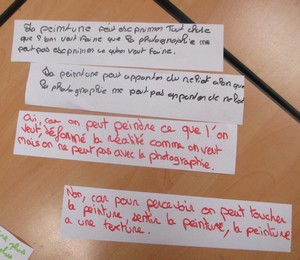 La peinture peut exprimer tout chose
que l'on veut faire que la photographie ne
peut pas exprimer ce qu'on veut faire.
La peinture peut apporter du relief alors que
la photographie ne peut pas apporter de relief
Oui, car on peut peindre ce que l'on
veut, déformé la réalité comme on veut
mais on ne peut pas avec la photographie.
Non, car pour percevoir on peut toucher
la peinture, sentir la peinture, la peinture
a une texture.